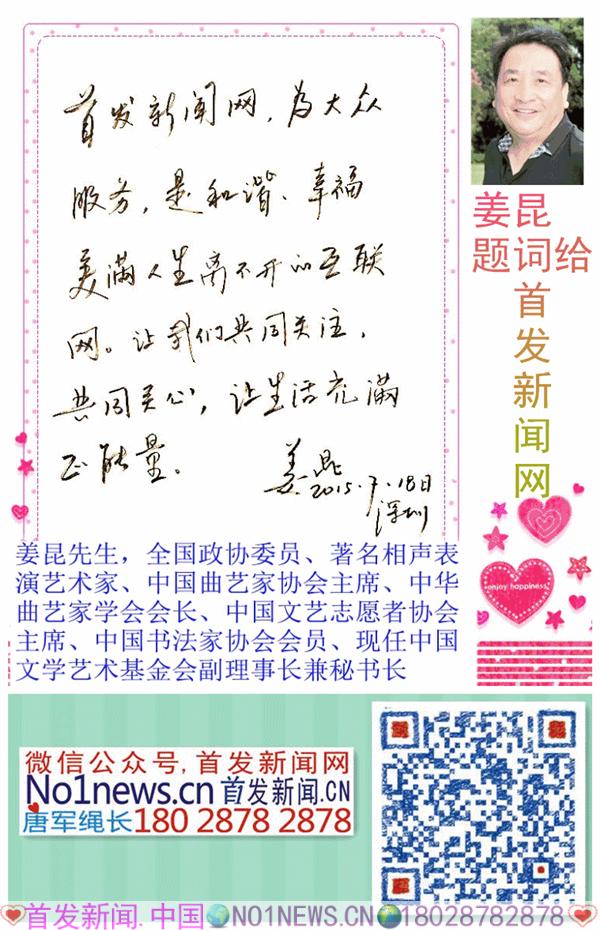 首发新闻网，为大众
服务，是和谐、幸福
美满人生离不开的互联
网。让我们共同关注，
共同关心，让生活充满
正能量。
姜昆
2015.7.18日
深圳
姜昆
题词给
首
发
新
闻
网
enjoy happiness
姜昆先生，全国政协委员、著名相声表
演艺术家、中国曲艺家协会主席、中华
曲艺家学会会长、中国文艺志愿者协会
主席、中国书法家协会会员、现任中国
文学艺术基金会副理事长兼秘书长
微信公众号,首发新闻网
No1news.cn 首发新闻.CN
唐军绳长180 2878 2878
首发新闻.中国 NO1NEWS.CN 18028782878